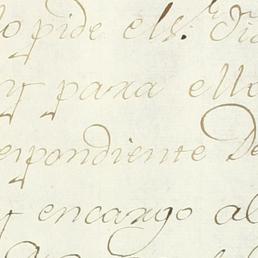 lo pide el Sr. Di
y para ello
espondiente De
y encargo al